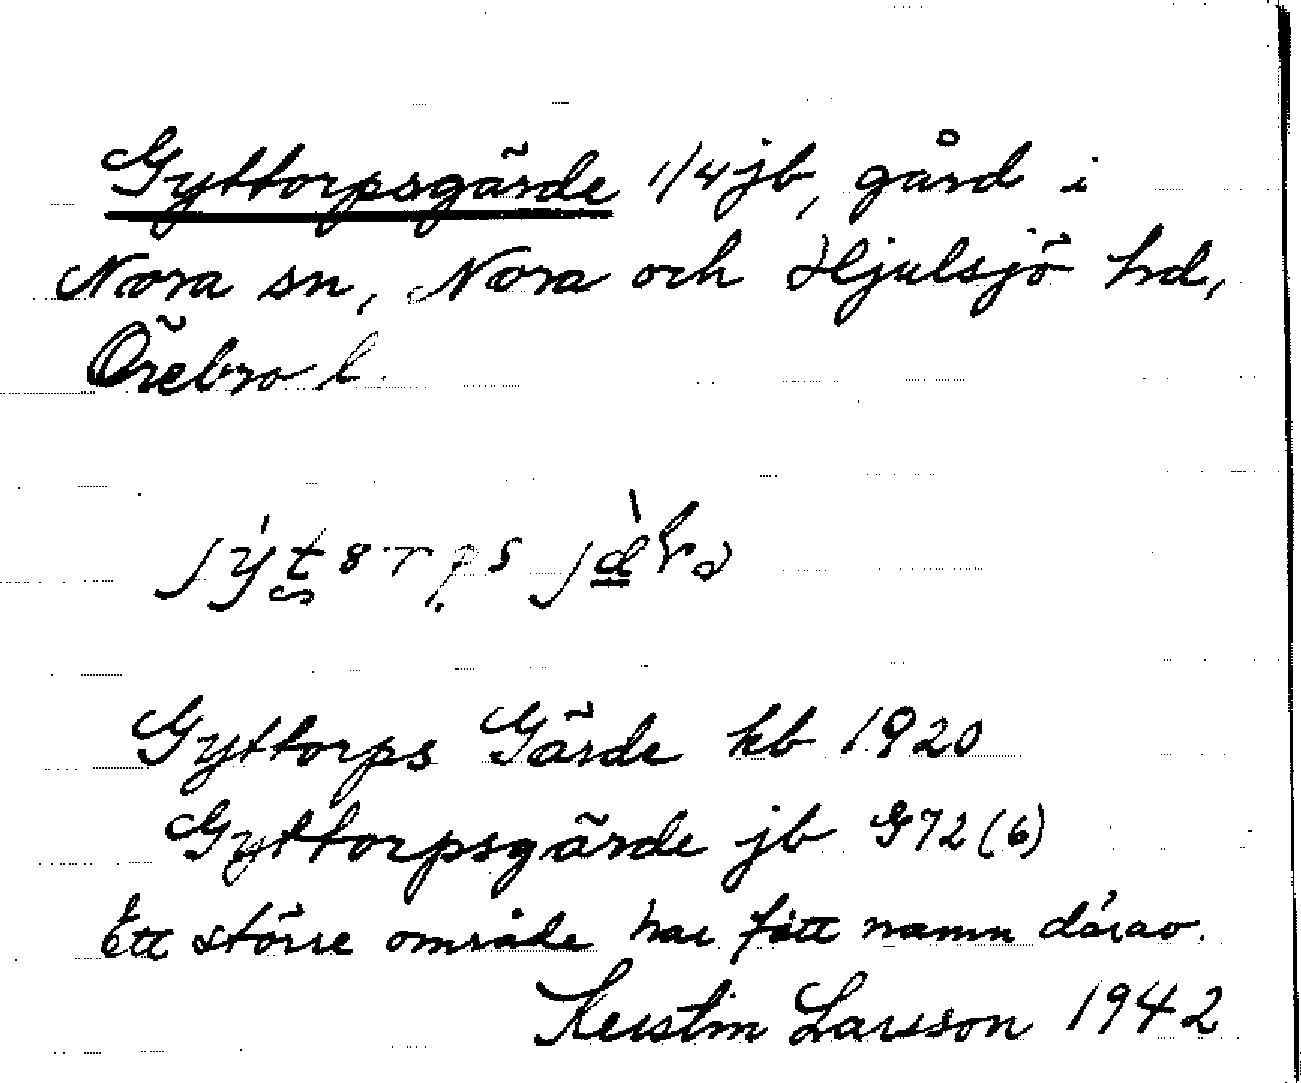 Gyttorpsgärde 1/4 jb, gård i
Nora sn, Nora och Hjulsjö hd,
Örebro l.
Gyttorps Gärde kb 1920
Gyttorpsgärde jb G72(6)
Ett större område har fått namn därav.
Kerstin Larsson 1942